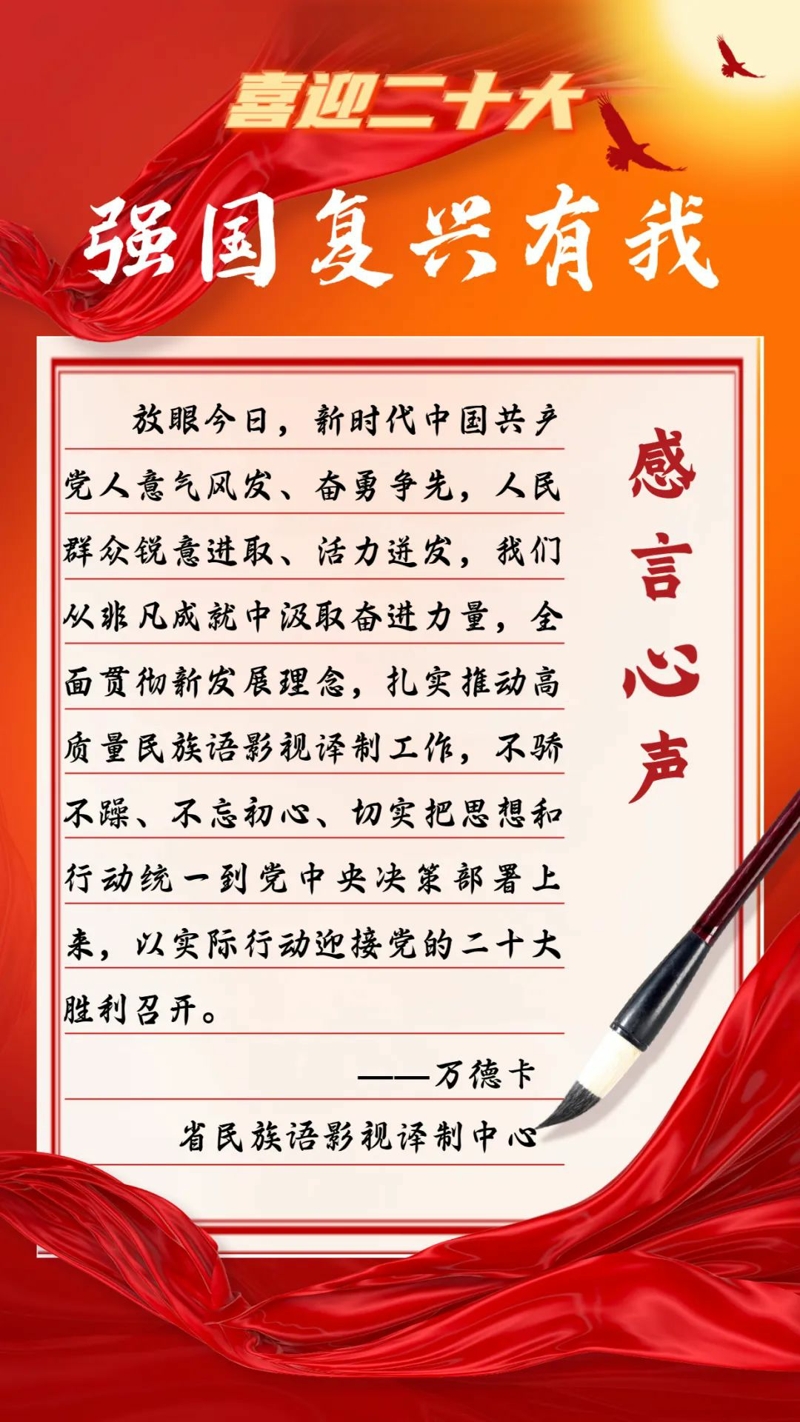 喜迎二十大
强国复兴有我
感言心声
放眼今日，新时代中国共产
党人意气风发、奋勇争先，人民
群众锐意进取、活力迸发，我们
从非凡成就中汲取奋进力量，全
面贯彻新发展理念，扎实推动高
质量民族语影视译制工作，不骄
不躁、不忘初心、切实把思想和
行动统一到党中央决策部署上
来，以实际行动迎接党的二十大
胜利召开。
——万德卡
省民族语影视译制中心